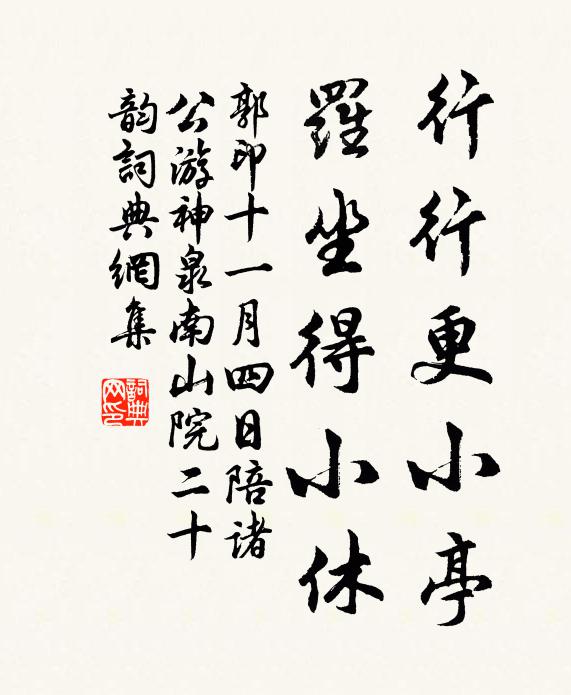 行行更小亭
羅坐得小休
郭印十一月四日陪諸
公游神泉南山院二十
韵詞典網集
詞典
网印